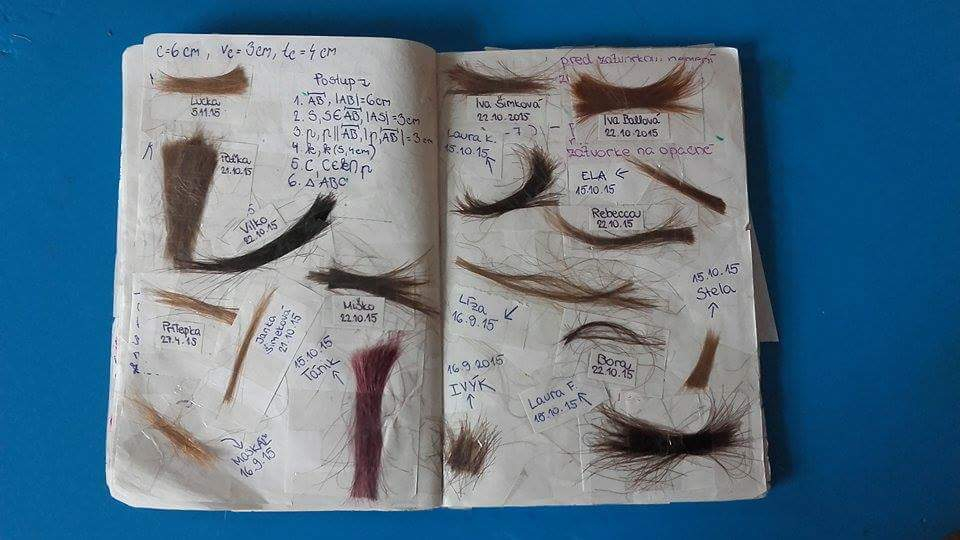 c=6cm, vc=3cm, tc=4cm
Postup
1. AB, |AB|=6cm
2. S, S∈AB, |AS|=3cm
3. p, p||AB, |p,AB|=3cm
4. k, k(S,4cm)
5. C, C∈k∩p
6. △ABC
Lucka
5.11.15
21.10.15
Vilko
22.10.15
Miško
22.10.15
Prilepka
27.4.15
Janka
Šimeková
21.10.15
15.10.15
Tánik
16.9.15
pred zátvorkou nemení
Iva Šimková
22.10.2015
Iva Ballová
22.10.2015
Laura K.
15.10.15
zátvorke na opačné
ELA
15.10.15
Rebecca
22.10.15
15.10.15
Stela
Líza
16.9.15
Bora
22.10.15
16.9.2015
IVYK
Laura F.
15.10.15